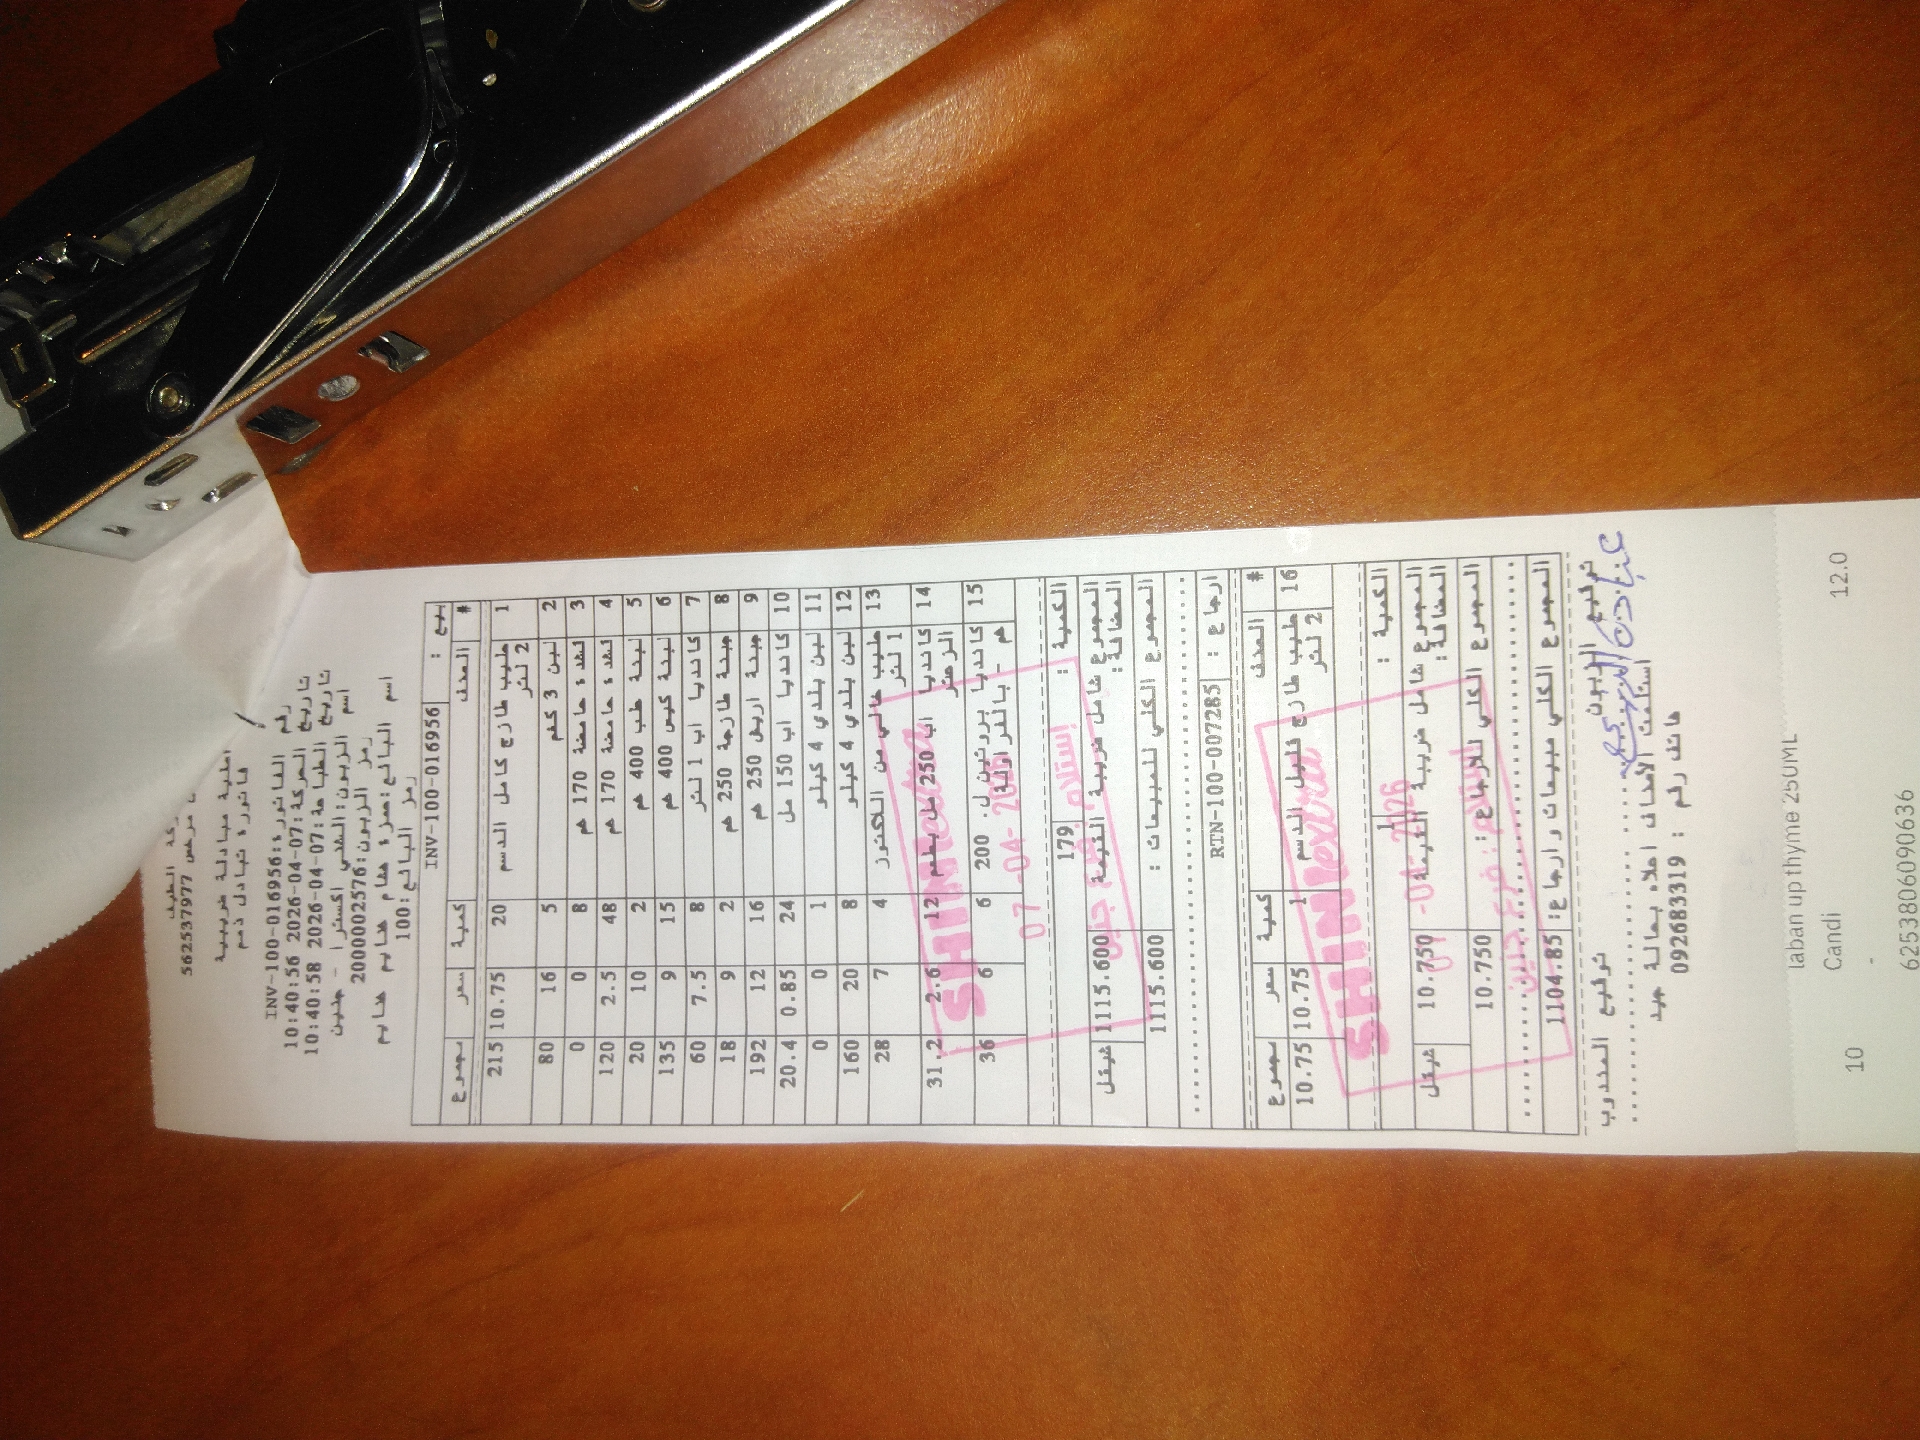 شركة الطيف
562537977 مرخص
اصلية مبادلة ضريبية
فاتورة تبادل ذمم
رقم الفاتورة:INV-100-016956
تاريخ الحركة:07-04-2026 10:40:56
تاريخ الطباعة:07-04-2026 10:40:58
اسم الزبون: اكسترا - جنين
رمز الزبون:2000002576
اسم البائع:حمزة همام
رمز البائع:100
بيع : INV-100-016956
# الصنف كمية سعر مجموع
1 حليب طازج كامل الدسم 20 10.75 215
2 لتر
2 لبن 3 كغم 5 16 80
3 لشدة حامضة 170 غم 8 0 0
4 لشدة حامضة 170 غم 48 2.5 120
5 لبنة علب 400 غم 2 10 20
6 لبنة كيس 400 غم 15 9 135
7 كانديا اب 1 لتر 8 7.5 60
8 جبنة طازجة 250 غم 2 9 18
9 جبنة 250 غم 16 12 192
10 كانديا اب 150 مل 24 0.85 20.4
11 لبن بلدي 4 كيلو 1 0 0
12 لبن بلدي 4 كيلو 8 20 160
13 حليب خالي من اللاكتوز 4 7 28
1 لتر
14 كانديا اب 250 مل بطعم 12 2.6 31.2
الزعتر
15 كانديا بروتين ل. 200 6 6 36
غم - بالفراولة
الكمية : 179
المجموع شامل ضريبة القيمة 1115.600 شيقل
المضافة :
المجموع الكلي للمبيعات : 1115.600
ارجاع : RTN-100-007285
# الصنف كمية سعر مجموع
16 حليب طازج قليل الدسم 1 10.75 10.75
2 لتر
الكمية : 1
المجموع شامل ضريبة القيمة 10.750 شيقل
المضافة :
المجموع الكلي للارجاع : 10.750
المجموع الكلي مبيعات وارجاع: 1104.85
توقيع الزبون توقيع المندوب
استلمت الأصناف اعلاه بحالة جيد
هاتف رقم : 092683319
SHINI extra
07-04-2026
استلام: فرع جنين
SHINI extra
07-04-2026
استلام: فرع جنين
laban up thyme 250ML
Candi
10 12.0
-
6253806090636